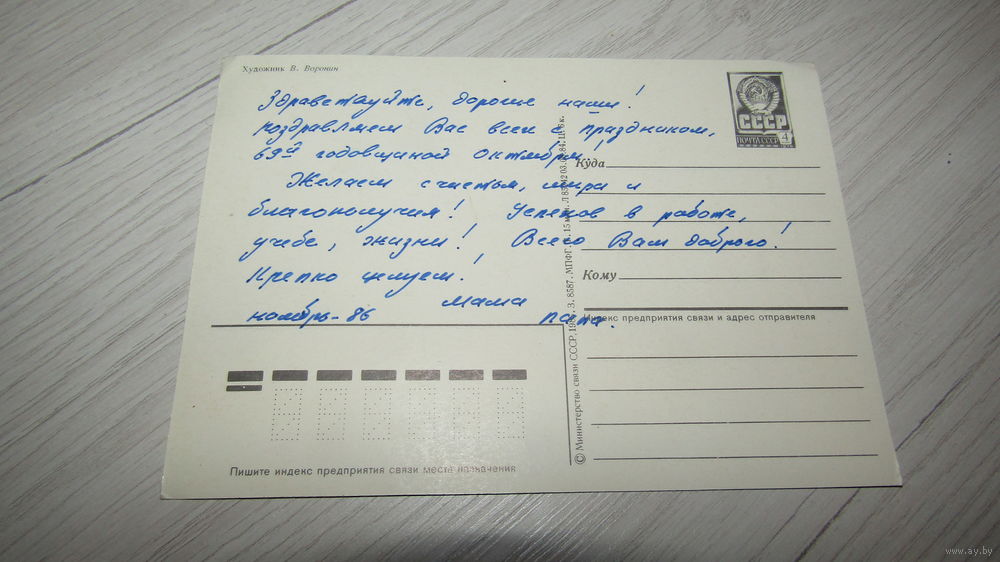 Художник В. Воронин
Здравствуйте, дорогие наши!
Поздравляем Вас всех с праздником,
69й годовщиной Октября!
Желаем счастья, мира и
благополучия! Успехов в работе,
учебе, жизни! Всего Вам доброго!
Крепко целуем!
Мама
ноябрь-86 папа.
ПОЧТА СССР
СССР
4
Куда
Кому
Индекс предприятия связи и адрес отправителя
© Министерство связи СССР, З. 8587. МПФГ. 15 Ц. 6 к.
Пишите индекс предприятия связи места назначения
www.ay.by